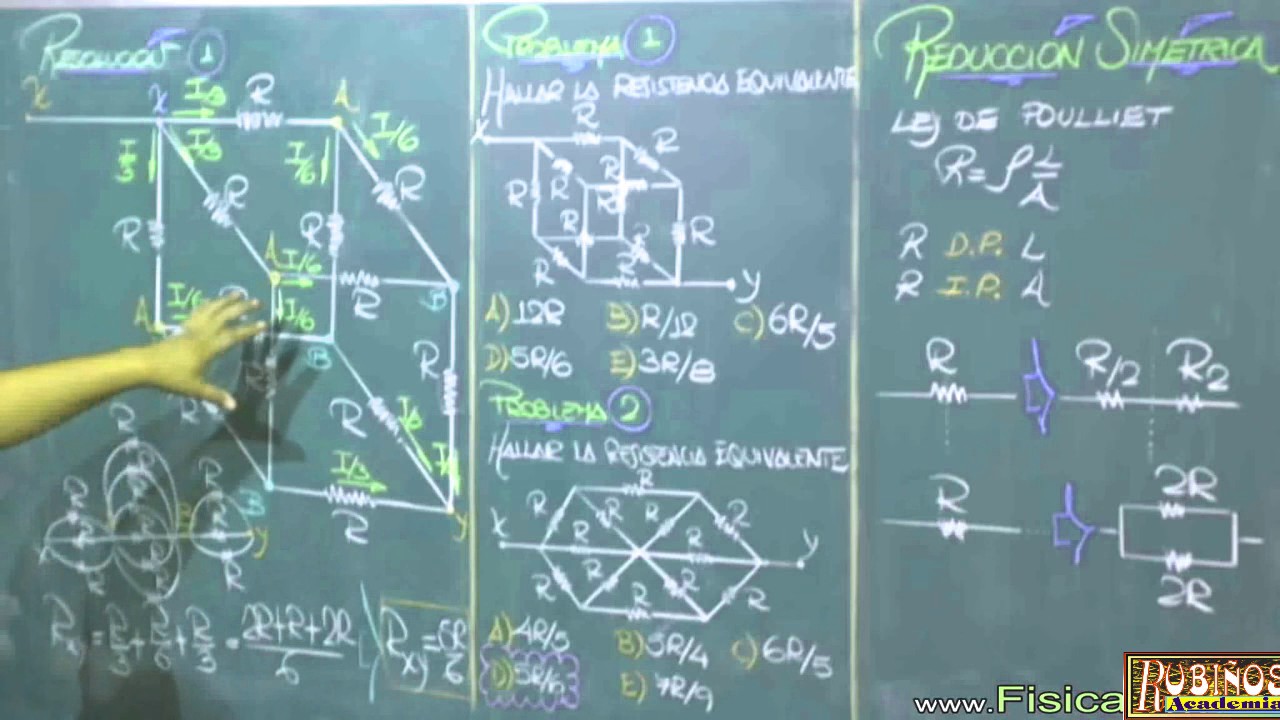 1
X
X
I/3
R
A
I/6
I/3
I/3
I/6
R
R
R
R
A
I/6
R
B
I/6
A
I/6
B
R
R
R
I/3
I/3
B
R
Y
R
R
R
R
R
R
R
B
X
Y
R
R
Rxy = R/3 + R/6 + R/3 = 2R+R+2R/6
Rxy = 5R/6
PROBLEMA 1
HALLAR LA RESISTENCIA EQUIVALENTE
X
R
R
R
R
R
R
R
R
R
R
Y
A) 12R B) R/12 C) 6R/5
D) 5R/6 E) 3R/8
PROBLEMA 2
HALLAR LA RESISTENCIA EQUIVALENTE
R
R
R
R
R
X
R
R
Y
R
R
R
R
R
A) 4R/5 B) 3R/4 C) 6R/5
D) 5R/6 E) 7R/9
REDUCCION SIMETRICA
LEY DE POULLIET
R = ρ L/A
R D.P. L
R I.P. A
R R/2 R2
R 2R
2R
www.Fisica
RUBIÑOS
Academia